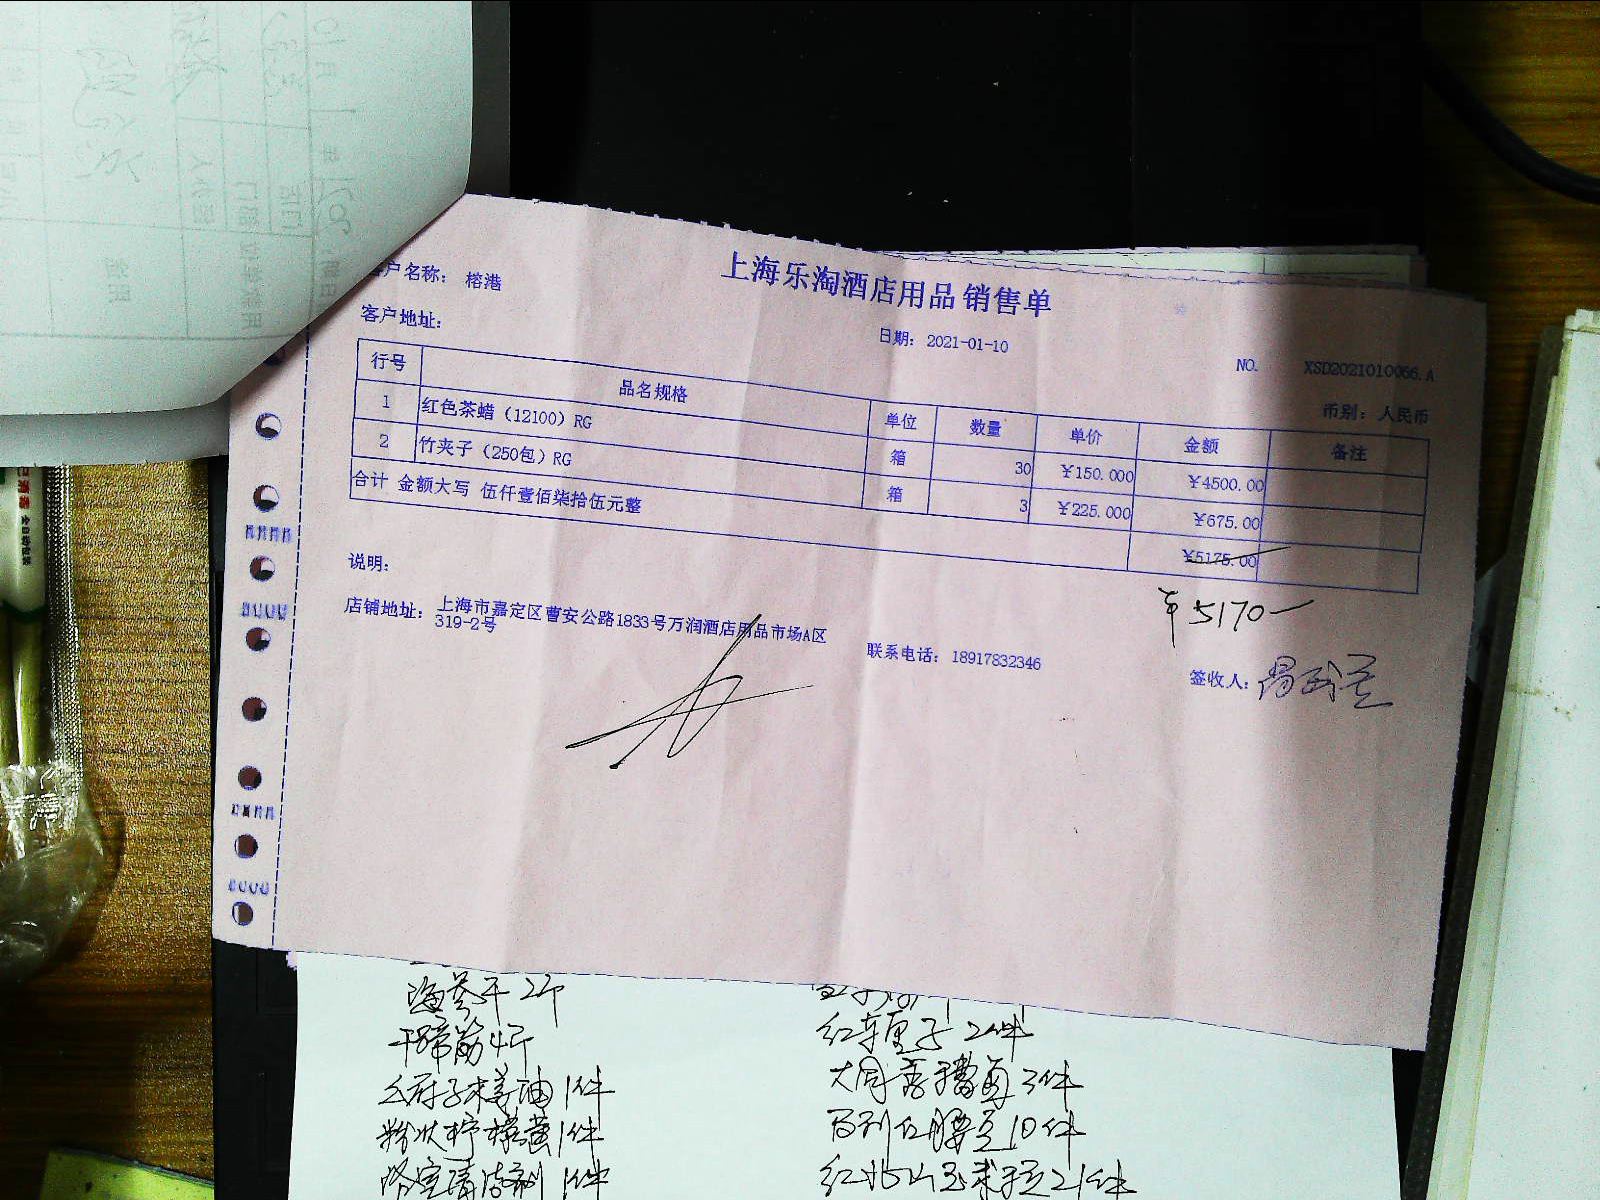 上海乐淘酒店用品 销售单
客户名称: 榕港
客户地址:
日期: 2021-01-10
NO. XSD2021010066.A
币别: 人民币
行号 品名规格 单位 数量 单价 金额 备注
1 红色茶蜡 (12100) RG 箱 30 ￥150.000 ￥4500.00
2 竹夹子 (250包) RG 箱 3 ￥225.000 ￥675.00
合计 金额大写 伍仟壹佰柒拾伍元整 ￥5175.00
￥5170
说明:
店铺地址: 上海市嘉定区曹安公路1833号万润酒店用品市场A区
319-2号
联系电话: 18917832346
签收人:
海参干 2斤
干蹄筋 4斤
木姜油 1件
粉状柠檬黄 1件
1件
红车厘子 2件
3件
腰豆 10件
21件